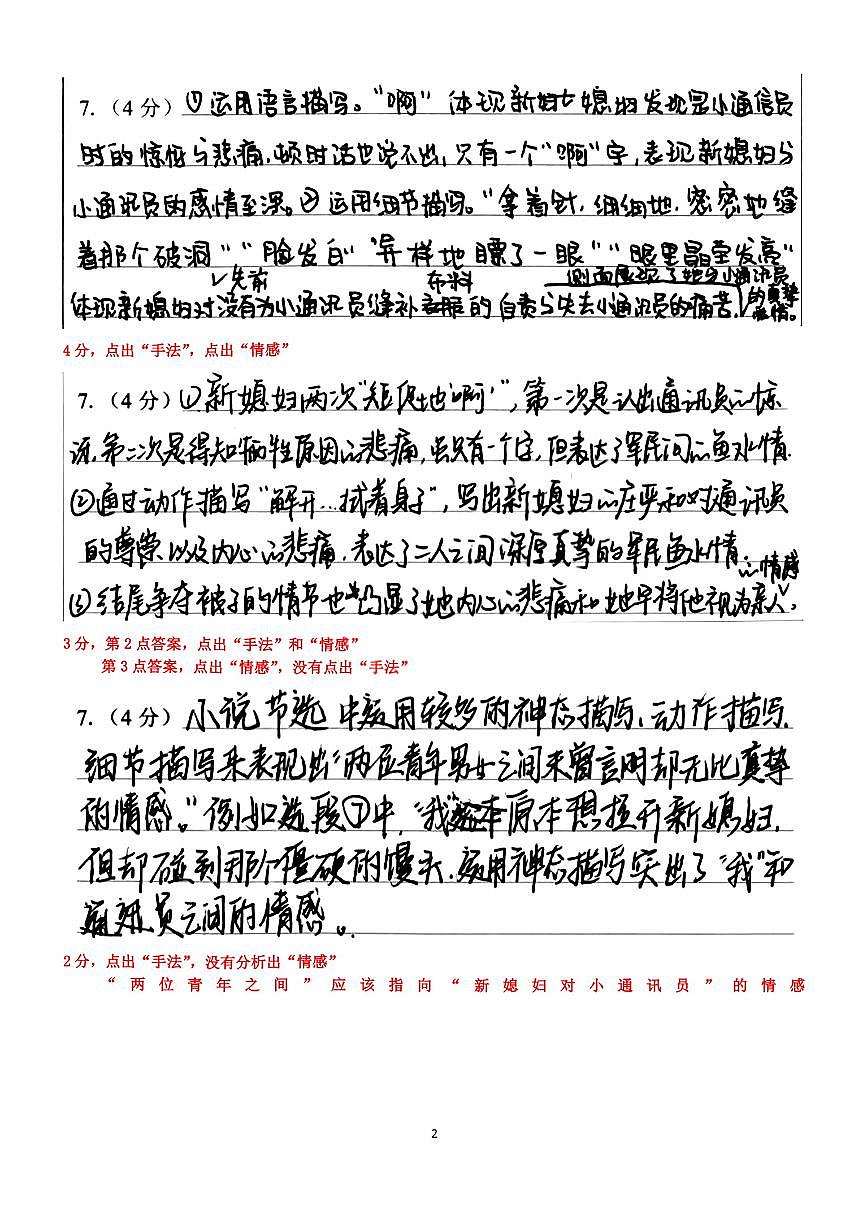 7. （4 分）①运用语言描写。“啊”体现新妇女媳妇发现是小通信员
时的惊怔与悲痛，顿时话也说不出，只有一个“啊”字，表现新媳妇与
小通讯员的感情至深。②运用细节描写。“拿着针，细细地，密密地缝
着那个破洞”“脸发白”“异样地瞟了一眼”“眼里晶莹发亮”
先前 布料 侧面展现了她与小通讯员
体现新媳妇对没有为小通讯员缝补衣服的自责与失去小通讯员的痛苦，的真挚
感情。
4 分，点出“手法”，点出“情感”
7. （4 分）①新媳妇两次“短促地‘啊’”，第一次是认出通讯员的惊
讶，第二次是得知牺牲原因的悲痛，虽只有一个字，但表达了军民间的鱼水情。
②通过动作描写“解开…拭着身子”，写出新媳妇的庄严和对通讯员
的尊崇以及内心的悲痛，表达了二人之间深厚真挚的军民鱼水情。
的情感
③结尾争夺被子的情节也凸显了她内心的悲痛和她早将他视为亲人。
3 分，第 2 点答案，点出“手法”和“情感”
第 3 点答案，点出“情感”，没有点出“手法”
7. （4 分）小说节选中运用较多的神态描写、动作描写、
细节描写来表现出“两位青年男女之间未曾言明却无比真挚
的情感。”例如选段⑦中，“我”原本想推开新媳妇，
但却碰到那个僵硬的馒头，运用神态描写突出了“我”和
通讯员之间的情感。
2 分，点出“手法”，没有分析出“情感”
“两位青年之间”应该指向“新媳妇对小通讯员”的情感
2